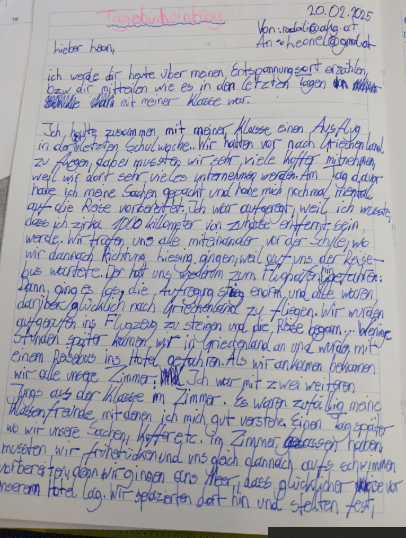 Tagebucheintrag
20.02.2025
Von:
An:
Lieber Leon,
ich werde dir heute über meinen Entspannungsort erzählen
bzw dir mitteilen wie es in den letzten Tagen
mit meiner Klasse war.
Ich hatte zusammen mit meiner Klasse einen Ausflug
in der vierzigen Schulwoche. Wir hatten vor nach Griechenland
zu fliegen, dabei mussten wir sehr viele Koffer mitnehmen,
weil wir dort sehr vieles unternehmen werden. Am Tag davor
habe ich meine Sachen gepackt und habe mich nochmal mental
auf die Reise vorbereitet. Ich war aufgeregt, weil ich wusste,
dass ich zirka 1000 Kilometer von zuhause entfernt sein
werde. Wir trafen uns alle miteinander vor der Schule, wo
wir dannach Richtung gingen, weil auf uns der Reise-
bus wartete. Der hat uns zum Flughafen gefahren.
Dann ging es los, die Aufregung stieg enorm und alle waren
darüber glücklich nach Griechenland zu fliegen. Wir wurden
aufgerufen ins Flugzeug zu steigen und die Reise begann... Wenige
Stunden später kamen wir in Griechenland an und wurden mit
einem Reisebus ins Hotel gefahren. Als wir ankamen bekamen
wir alle unsere Zimmer. Ich war mit zwei weiteren
Jungs aus der Klasse im Zimmer. Es waren zufällig meine
Klassenfreunde mit denen ich mich gut verstehe. Einen Tag später
wo wir unsere Sachen, Koffer etc. im Zimmer gelassen haben,
mussten wir frühstücken und uns gleich dannach aufs schwimmen
vorbereiten, denn wir gingen ans Meer, dass glücklicher vor
unserem Hotel lag. Wir spazierten dort hin und stellten fest,